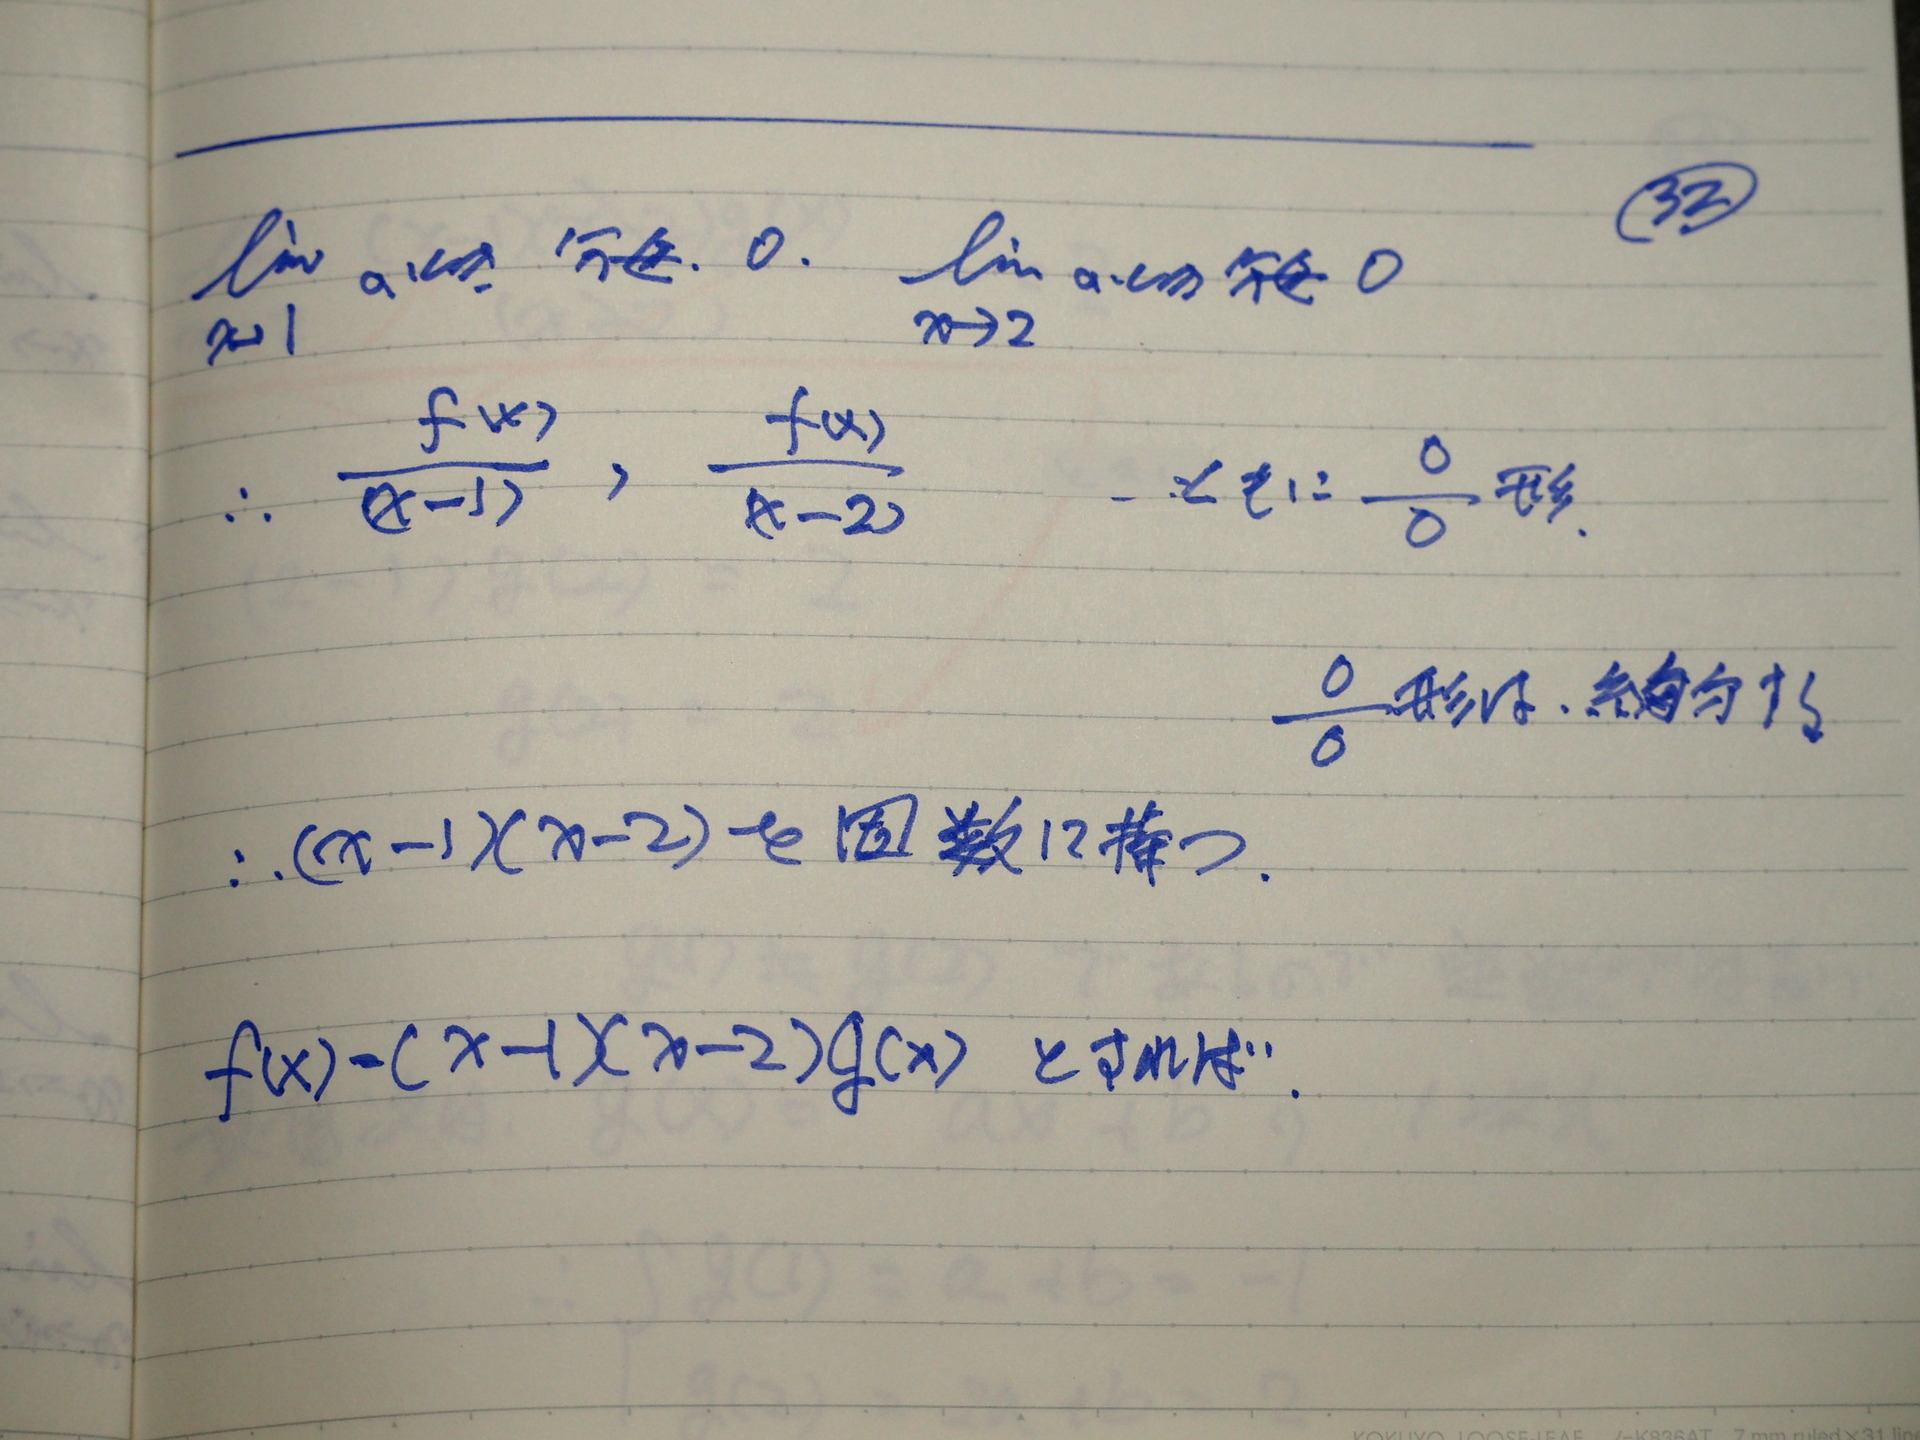 (32)
lim x→1 のとき 分母 0. lim x→2 のとき 分母 0
∴ f(x)/(x-1) , f(x)/(x-2) ともに 0/0 形.
0/0 形は、約分する
∴ (x-1)(x-2)を因数に持つ.
f(x)=(x-1)(x-2)g(x) とすれば.
KOKUYO LOOSE-LEAF ノ-K836AT 7 mm ruled×31 lines